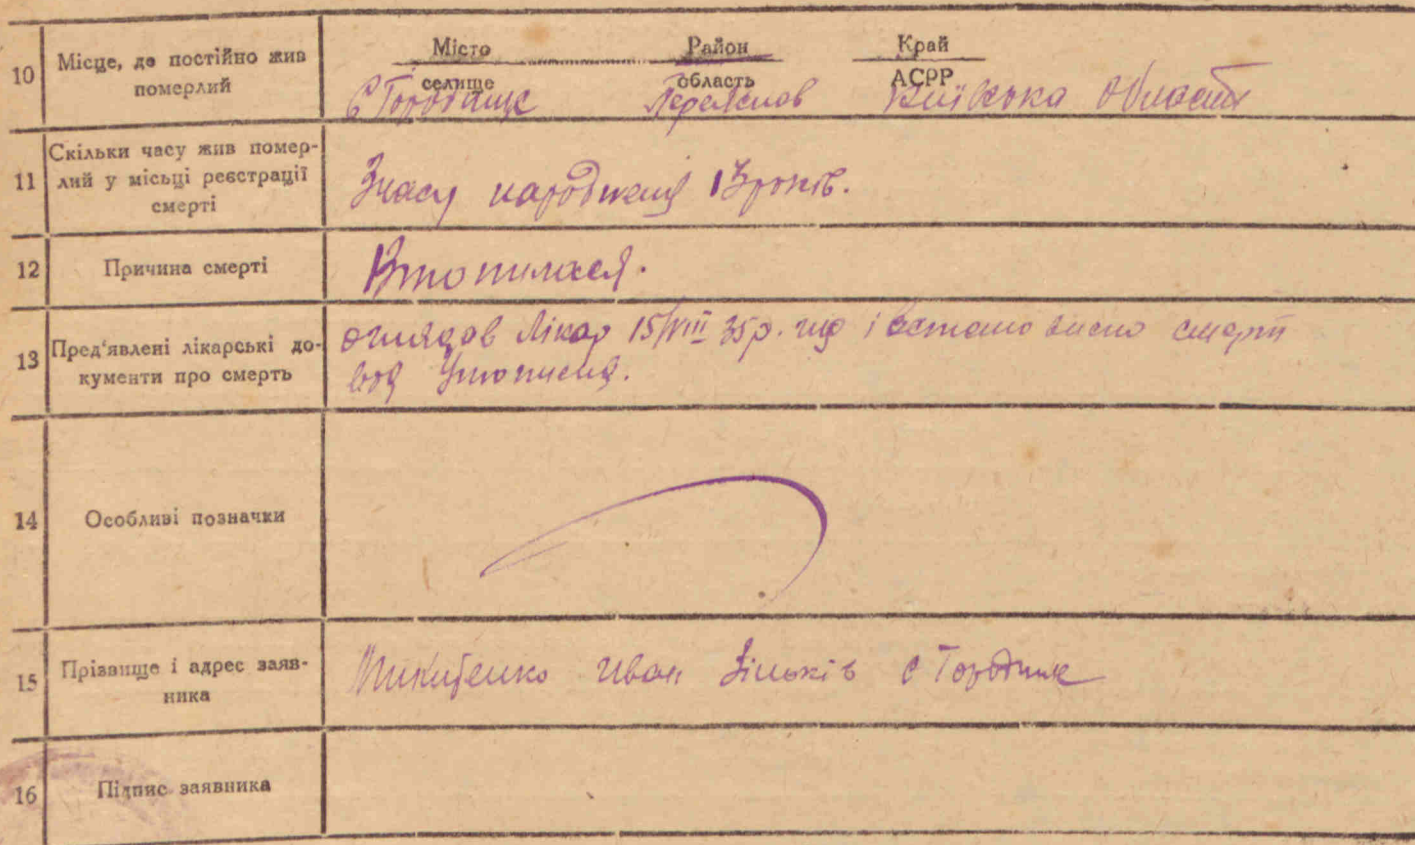 10 Місце, де постійно жив померлий
Місто Район Край
селище область АСРР
с Городище Переяслов Київська Область
11 Скільки часу жив помер-
лий у місьці реєстрації
смерті
Зчасу народженя 13 років.
12 Причина смерті
Втопилася.
13 Пред'явлені лікарські до-
кументи про смерть
оглядав лікар 15/VIII 35р. що і встановлено смерт
від Утоплення.
14 Особливі позначки
15 Прізвище і адрес заяв-
ника
Микитенко Иван с Городище
16 Підпис заявника